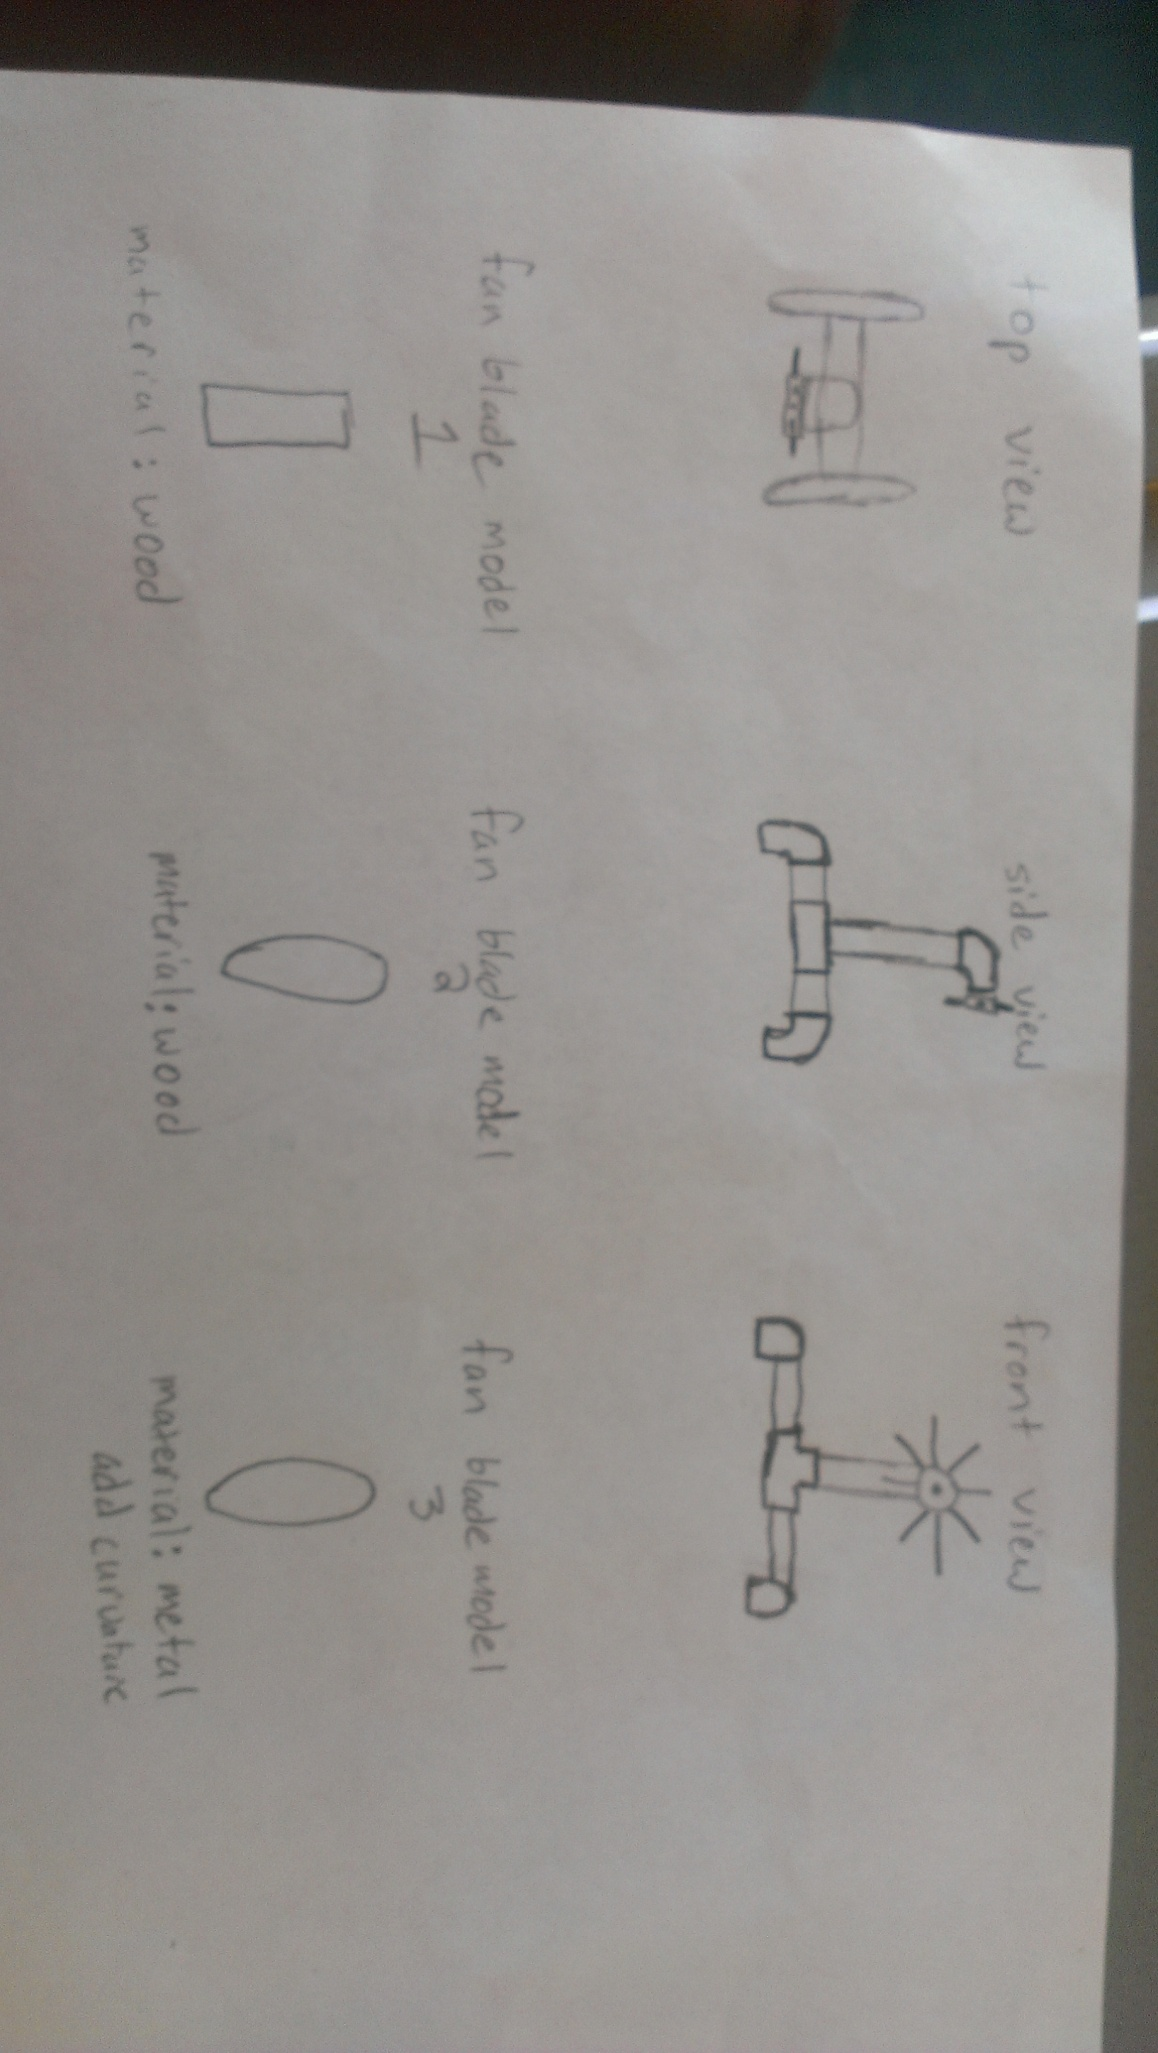 top view
side view
front view
fan blade model
1
fan blade model
2
fan blade model
3
material: wood
material: wood
material: metal
add curvature